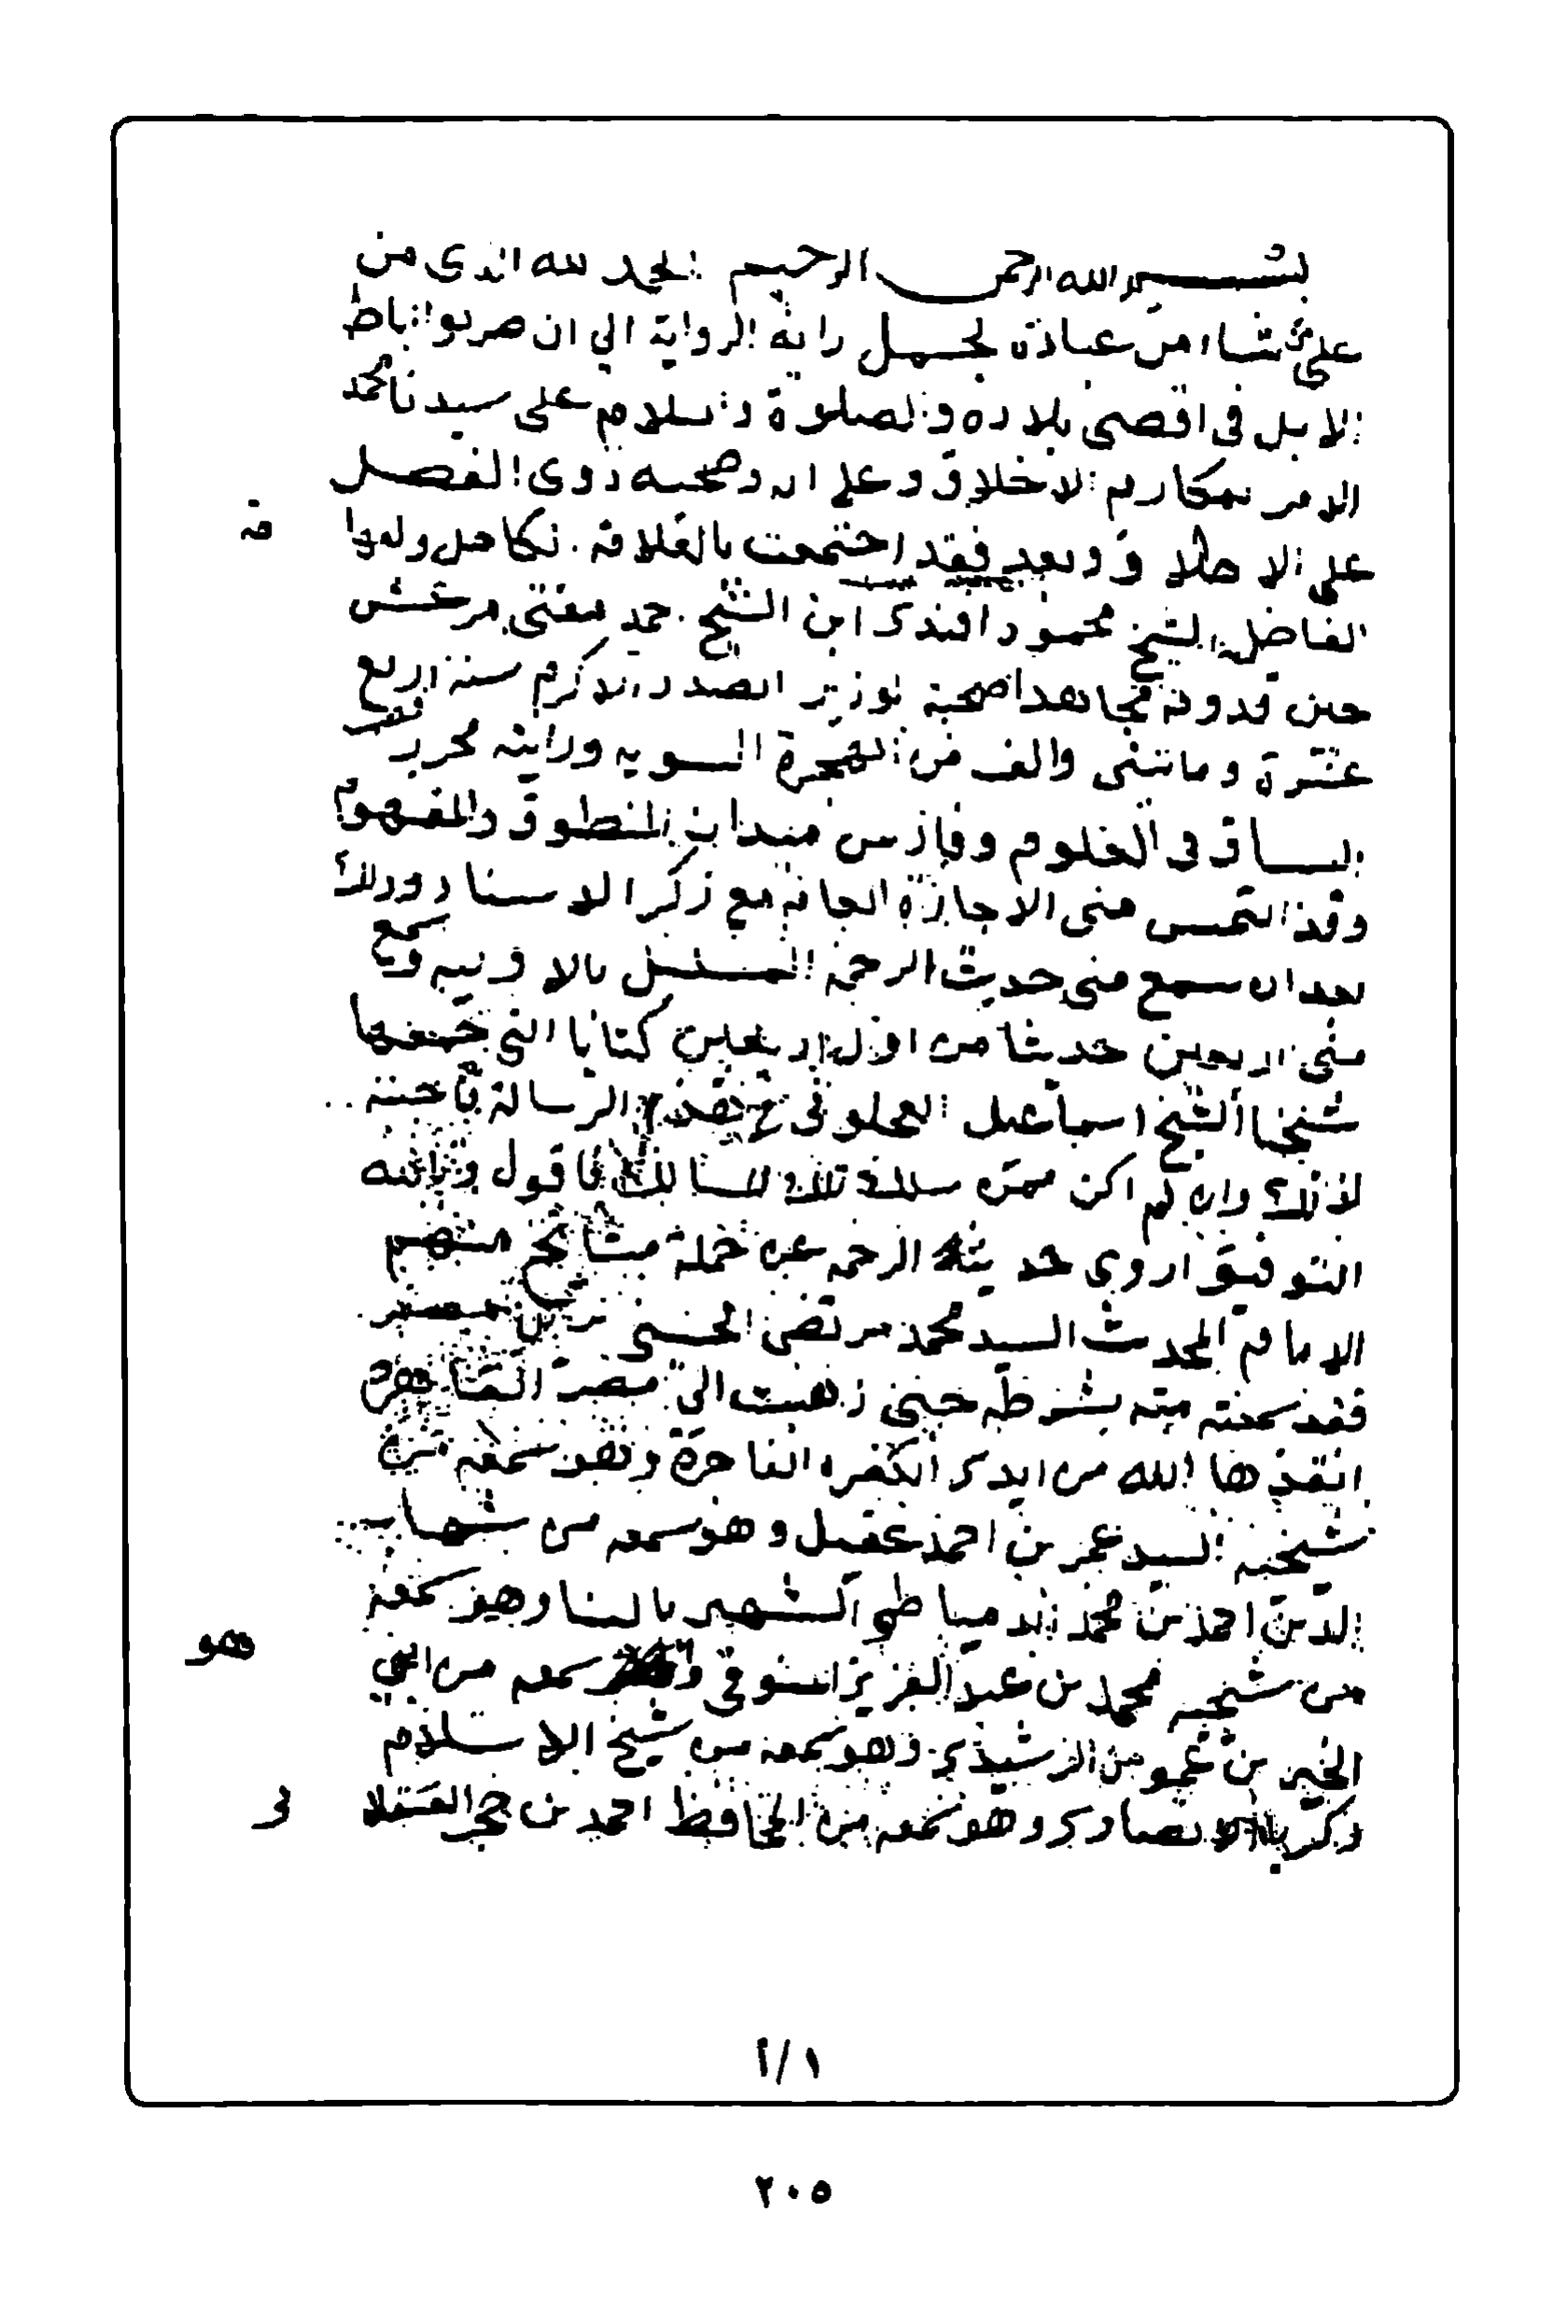 بسم الله الرحمن الرحيم الحمد لله الذي من
على من شاء من عباده لحمل راية الرواية الي ان ضربوا اباط
الابل في اقصى بلاده والصلوة والسلام على سيدنا محمد
الامر بمكارم الاخلاق وعلى اله وصحبه ذوي الفضل
على الاطلاق وبعد فقد اجتمعت بالعلامة الكامل والفها
مة
الفاضل الشيخ محمود افندي ابن الشيخ احمد مفتي مرعش
حين قدومه مجاهدا صحبة لوزير الصدر الاكرم سنة اربع
عشرة ومايتين والف من الهجرة النبويه ورايته محرر
السباق في العلوم وفارس ميدان المنطوق والمفهوم
وقد التمس مني الاجازة العامة مع ذكر الاسناد وذلك
بعد ان سمع مني حديث الرحمة المسلسل بالاولية وسمع
مني اربعين حديثا من اول اربعين كتابا التي جمعها
شيخنا الشيخ اسماعيل العجلوني الرسالة فاجبته
لذلك وان لم اكن ممن سلك تلك المسالك فاقول وبالله
التوفيق اروي حديث الرحمة عن جملة مشايخ منهم
الامام المحدث السيد محمد مرتضى الحسني نزيل مصر
فقد سمعته منه بشرطه حين ذهبت الى مصر القاهرة
انقذها الله من ايدي الكفرة الفاجرة وهو سمعه من
شيخه السيد عمر بن احمد عقيل وهو سمعه من شهاب
الدين احمد بن محمد الدمياطي الشهير بالبنا وهو سمعه
من شيخه محمد بن عبد العزيز المنوفي سمعه من ابي
وهو
الخير بن عموس الرشيدي وهو سمعه من شيخ الاسلام
زكريا الانصاري وهو سمعه من الحافظ احمد بن حجر العسقلا
ني
١/أ
٢٠٥